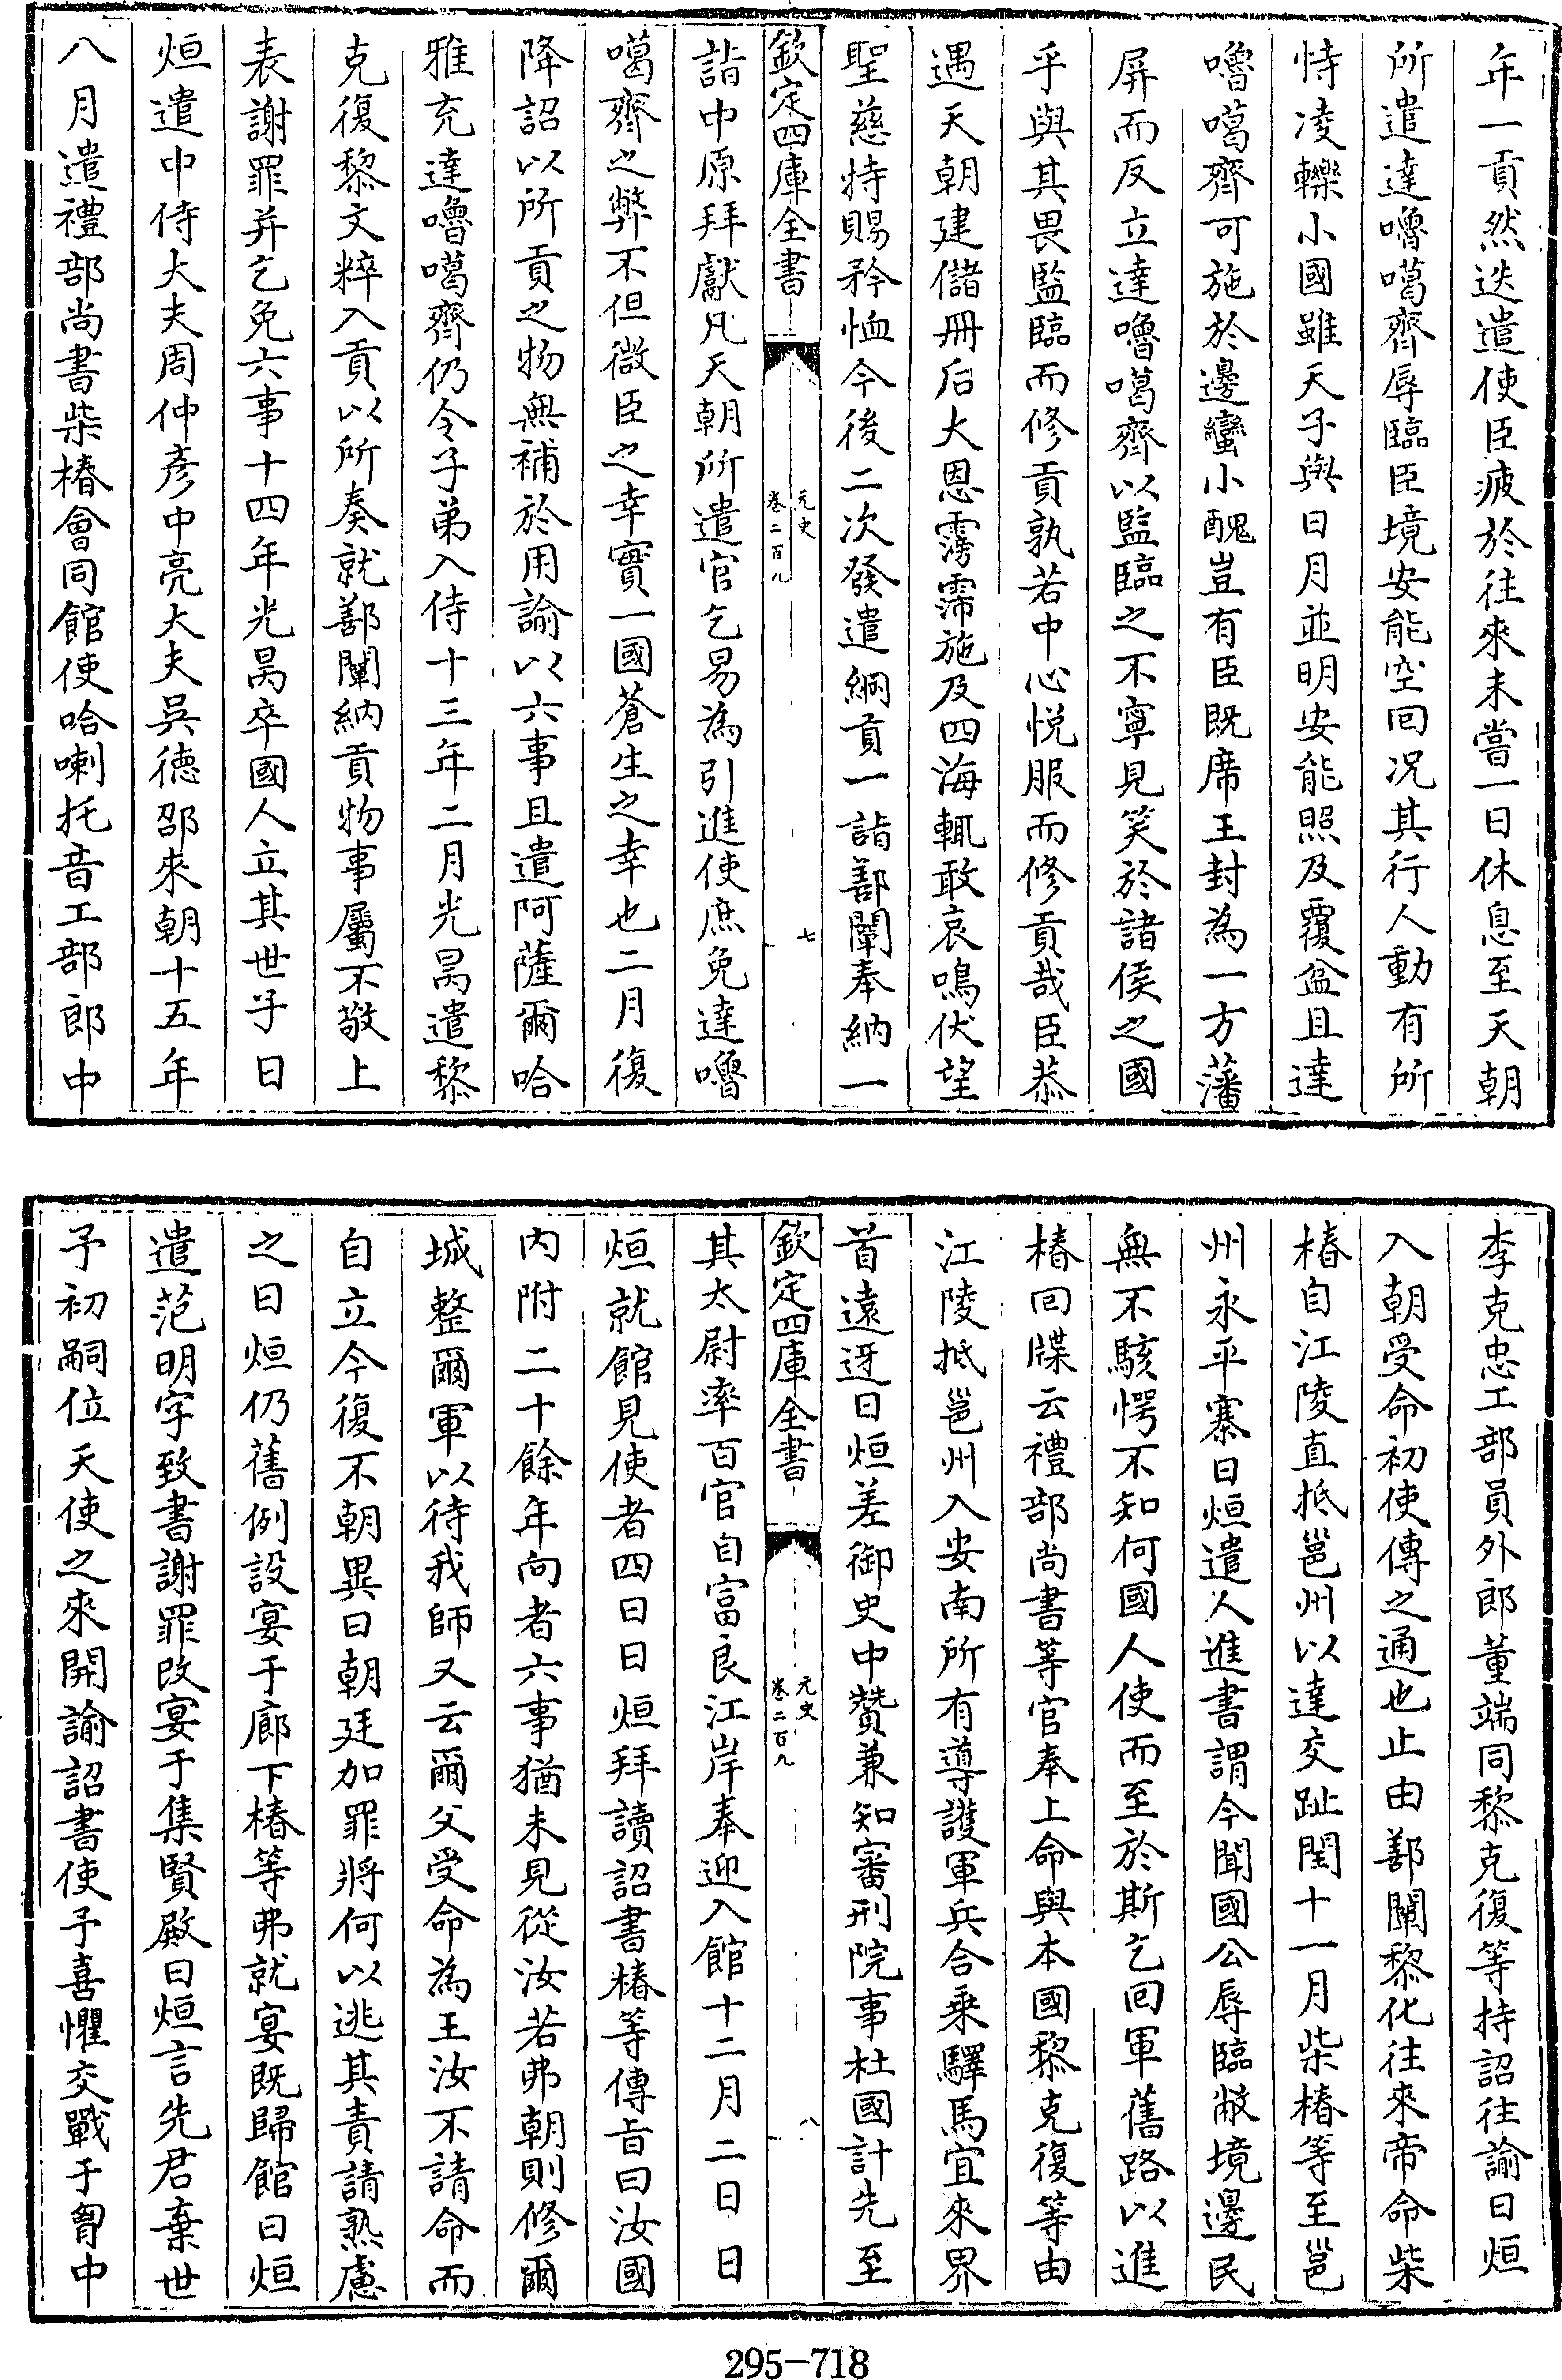 年一貢然迭遣使臣疲於往來未嘗一日休息至天朝
所遣達嚕噶齊辱臨臣境安能空回况其行人動有所
恃凌轢小國雖天子與日月並明安能照及覆盆且達
嚕噶齊可施於邊蠻小醜豈有臣既席王封為一方藩
屏而反立達嚕噶齊以監臨之不寧見笑於諸侯之國
乎與其畏監臨而修貢孰若中心悦服而修貢哉臣恭
遇天朝建儲冊后大恩霶霈施及四海輒敢哀鳴伏望
聖慈特賜矜恤今後二次發遣綱貢一詣鄯闡奉納一
欽定四庫全書
元史
卷二百九
七
詣中原拜獻凡天朝所遣官乞易為引進使庶免達嚕
噶齊之弊不但微臣之幸實一國蒼生之幸也二月復
降詔以所貢之物無補於用諭以六事且遣阿薩爾哈
雅充達嚕噶齊仍令子弟入侍十三年二月光昺遣黎
克復黎文粹入貢以所奏就鄯闡納貢物事屬不敬上
表謝罪并乞免六事十四年光昺卒國人立其世子日
烜遣中侍大夫周仲彥中亮大夫吳德邵來朝十五年
八月遣禮部尚書柴椿會同館使哈喇托音工部郎中
李克忠工部員外郎董端同黎克復等持詔往諭日烜
入朝受命初使傳之通也止由鄯闡黎化往來帝命柴
椿自江陵直抵邕州以達交趾閏十一月柴椿等至邕
州永平寨日烜遣人進書謂今聞國公辱臨敝境邊民
無不駭愕不知何國人使而至於斯乞回軍舊路以進
椿回牒云禮部尚書等官奉上命與本國黎克復等由
江陵抵邕州入安南所有導護軍兵合乘驛馬宜來界
首遠迓日烜差御史中贊兼知審刑院事杜國計先至
欽定四庫全書
元史
卷二百九
八
其太尉率百官自富良江岸奉迎入館十二月二日日
烜就館見使者四日日烜拜讀詔書椿等傳旨曰汝國
内附二十餘年向者六事猶未見從汝若弗朝則修爾
城整爾軍以待我師又云爾父受命為王汝不請命而
自立今復不朝異日朝廷加罪將何以逃其責請熟慮
之日烜仍舊例設宴于廊下椿等弗就宴既歸館日烜
遣范明字致書謝罪改宴于集賢殿日烜言先君棄世
予初嗣位天使之來開諭詔書使予喜懼交戰于胷中
295-718